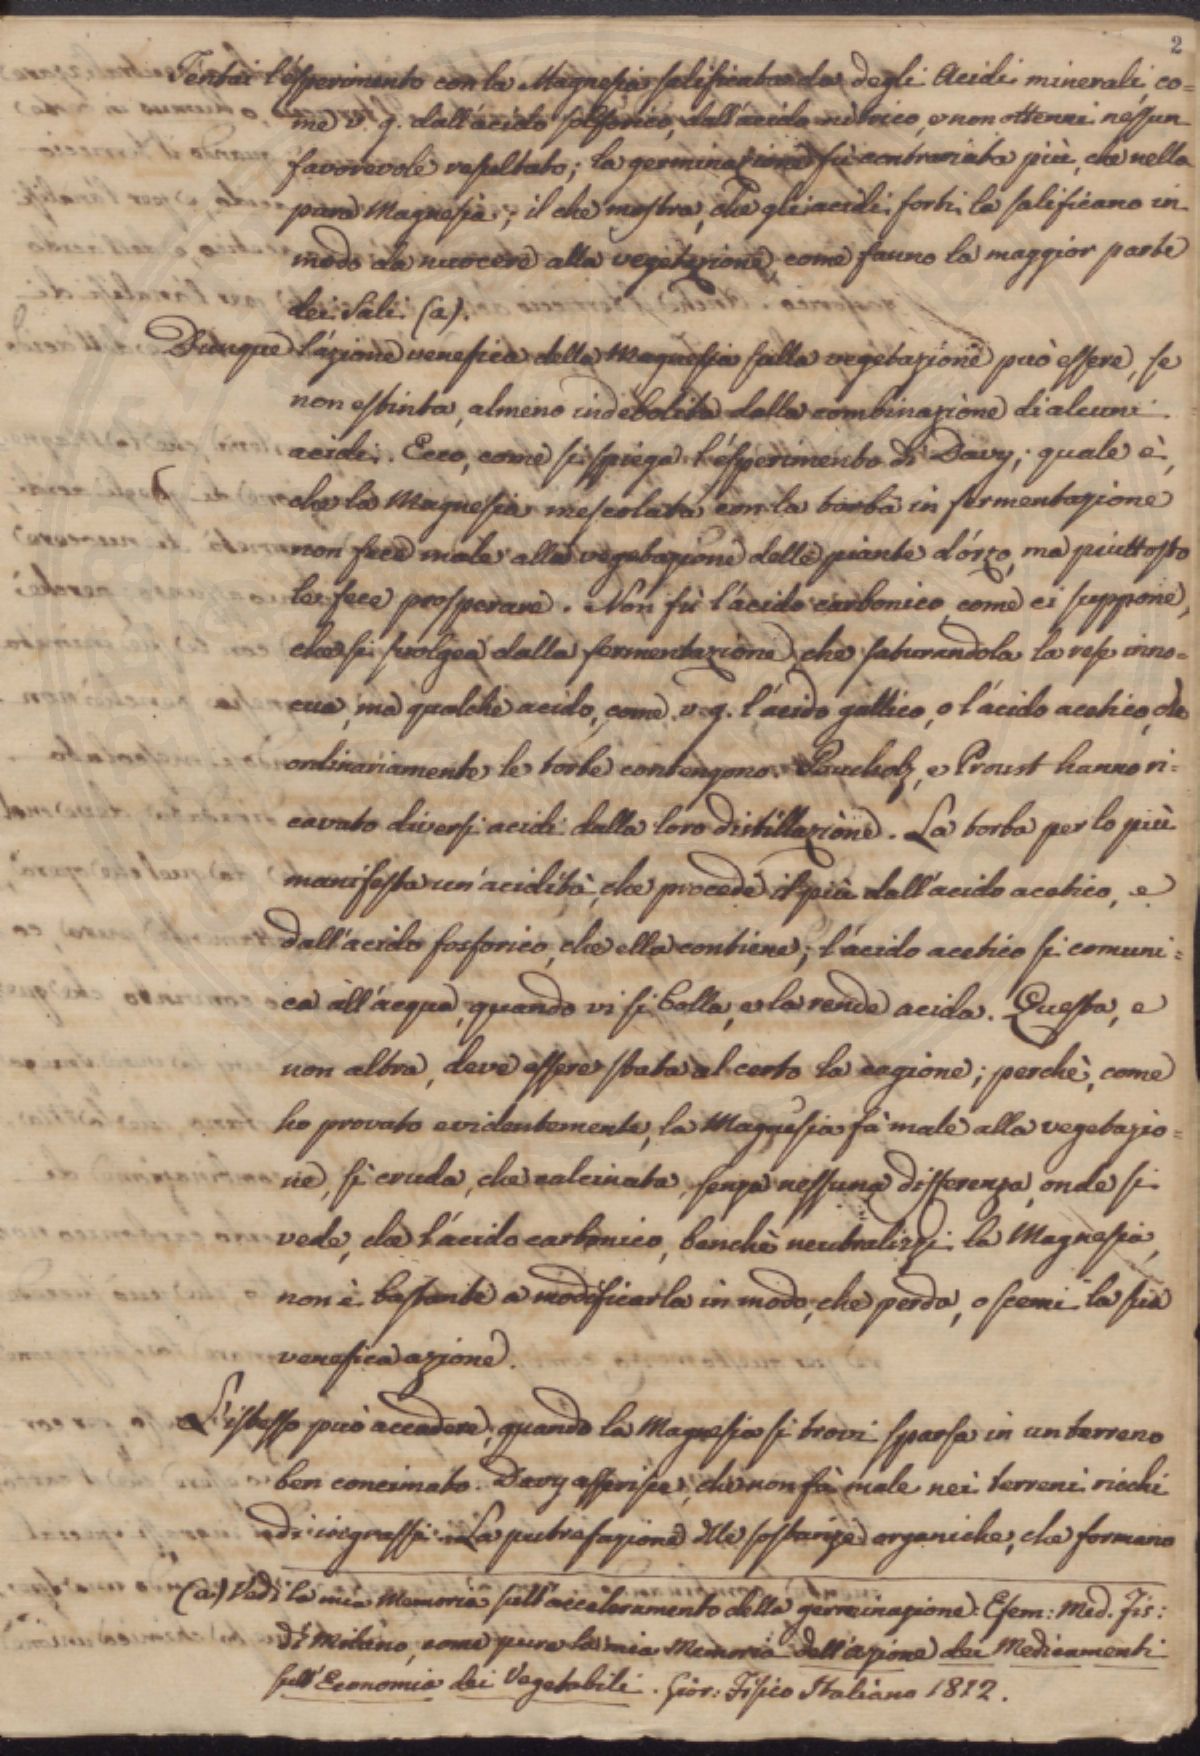 2
Tentai l'esperimento con la Magnesia salificata da degli Acidi minerali, co=
me v. g. dall'acido solforico, dall'acido nitrico, e non ottenni nessun
favorevole resultato; la germinazione fù contrariata più, che nella
pura Magnesia; il che mostra, che gli acidi forti la salificano in
modo da nuocere alla vegetazione, come fanno la maggior parte
dei Sali (a).
Dunque l'azione venefica della Magnesia sulla vegetazione può essere, se
non estinta, almeno indebolita dalla combinazione di alcuni
acidi. Ecco, come si spiega l'esperimento di Davy; quale è,
che la Magnesia mescolata con la torba in fermentazione
non fece male alla vegetazione delle piante d'orzo, ma piuttosto
le fece prosperare. Non fù l'acido carbonico, come ei suppone,
che si svolgea dalla fermentazione, che saturandola la rese inno=
cua, ma qualche acido, come v. g. l'acido gallico, o l'acido acetico, che
ordinariamente le torbe contengono. e Proust hanno ri=
cavato diversi acidi dalla loro distillazione. La torba per lo più
manifesta un'acidità, che procede il più dall'acido acetico, e
dall'acido fosforico, che ella contiene; l'acido acetico si comuni=
ca all'acqua, quando vi si bolla, e la rende acida. Questa, e
non altra, deve essere stata al certo la cagione; perchè, come
ho provato evidentemente, la Magnesia fà male alla vegetazio=
ne, sì cruda, che calcinata, senza nessuna differenza, onde si
vede, che l'acido carbonico, benchè neutralizzi la Magnesia,
non è bastante a modificarla in modo, che perda, o scemi la sua
venefica azione.
L'istesso può accadere, quando la Magnesia si trovi sparsa in un terreno
ben concimato. Davy asserisce, che non fà male nei terreni ricchi
di ingrassi. La putrefazione delle sostanze organiche, che formano
(a) Vedi la mia Memoria sull'acceleramento della germinazione. Efem: Med. Fis:
di Milano, come pure la mia Memoria dell'azione dei Medicamenti
sull'Economia dei Vegetabili. Gior: Fisico Italiano 1812.